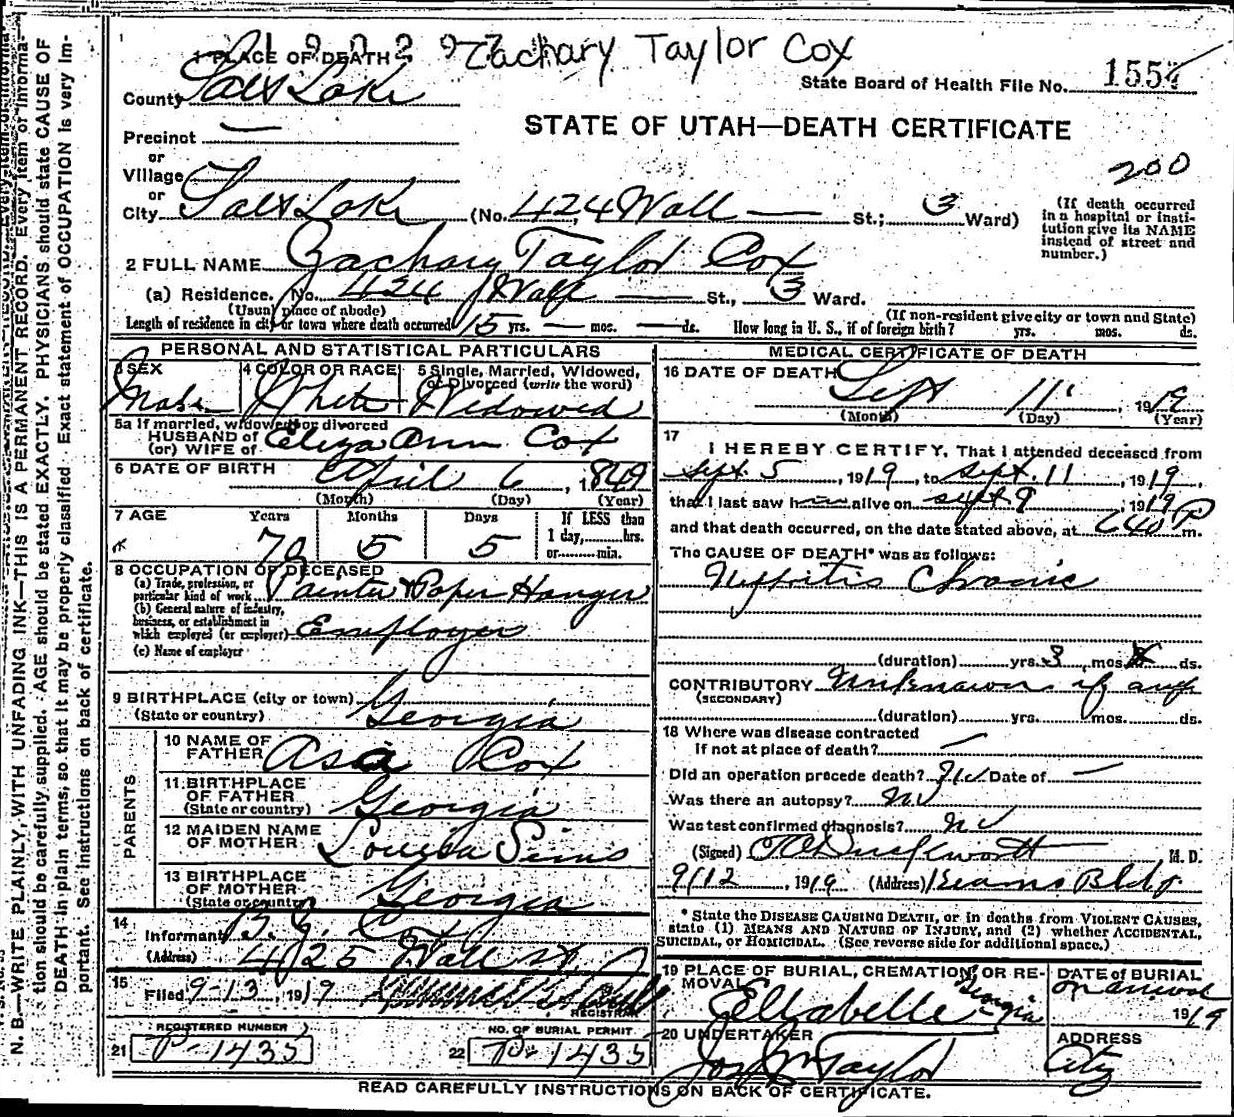 Zachary Taylor Cox
1 PLACE OF DEATH
State Board of Health File No. 155
County Salt Lake
STATE OF UTAH—DEATH CERTIFICATE
Precinct —
or
Village
200
or
City Salt Lake (No. 424 Wall — St.; 3 Ward)
(If death occurred in a hospital or insti-
tution give its NAME
instead of street and
number.)
2 FULL NAME Zachary Taylor Cox
(a) Residence. No. 424 Wall — St., 3 Ward.
(Usual place of abode)
(If non-resident give city or town and State)
Length of residence in city or town where death occurred 15 yrs. — mos. — ds. How long in U. S., if of foreign birth? yrs. mos. ds.
PERSONAL AND STATISTICAL PARTICULARS
3 SEX
Male
4 COLOR OR RACE
White
5 Single, Married, Widowed,
or Divorced (write the word)
Widowed
5a If married, widowed or divorced
HUSBAND of
(or) WIFE of Eliza Ann Cox
6 DATE OF BIRTH April 6, 1849
(Month) (Day) (Year)
7 AGE Years Months Days
70 5 5
If LESS than
1 day, hrs.
or min.
8 OCCUPATION OF DECEASED
(a) Trade, profession, or
particular kind of work Painter & Paper Hanger
(b) General nature of industry,
business, or establishment in
which employed (or employer) Employer
(c) Name of employer
9 BIRTHPLACE (city or town)
(State or country) Georgia
PARENTS
10 NAME OF
FATHER Asa Cox
11 BIRTHPLACE
OF FATHER
(State or country) Georgia
12 MAIDEN NAME
OF MOTHER Louisa Sims
13 BIRTHPLACE
OF MOTHER
(State or country) Georgia
14
Informant B. Cox
(Address) 425 Wall st
15
Filed 9-13, 1919
REGISTRAR
REGISTERED NUMBER
21 P-1435
NO. OF BURIAL PERMIT.
22 P-1435
MEDICAL CERTIFICATE OF DEATH
16 DATE OF DEATH Sept 11, 1919
(Month) (Day) (Year)
17
I HEREBY CERTIFY, That I attended deceased from
Sept. 5, 1919, to Sept. 11, 1919,
that I last saw him alive on Sept. 9, 1919
and that death occurred, on the date stated above, at 640 P m.
The CAUSE OF DEATH* was as follows:
Nephritis Chronic
(duration) yrs. 3 mos. ds.
CONTRIBUTORY Unknown if any
(SECONDARY)
(duration) yrs. mos. ds.
18 Where was disease contracted
if not at place of death? —
Did an operation precede death? No Date of —
Was there an autopsy? No
Was test confirmed diagnosis? No
(Signed) Duckworth M. D.
9/12, 1919 (Address) Kearns Bldg
* State the DISEASE CAUSING DEATH, or in deaths from VIOLENT CAUSES,
state (1) MEANS AND NATURE OF INJURY, and (2) whether ACCIDENTAL,
SUICIDAL, or HOMICIDAL. (See reverse side for additional space.)
19 PLACE OF BURIAL, CREMATION, OR RE-
MOVAL
Ellabelle Georgia
DATE of BURIAL
on arrival
1919
20 UNDERTAKER
Jos Wm Taylor
ADDRESS
City
READ CAREFULLY INSTRUCTIONS ON BACK OF CERTIFICATE.
N. B.—WRITE PLAINLY, WITH UNFADING INK—THIS IS A PERMANENT RECORD. Every item of informa-
tion should be carefully supplied. AGE should be stated EXACTLY. PHYSICIANS should state CAUSE OF
DEATH in plain terms, so that it may be properly classified. Exact statement of OCCUPATION is very im-
portant. See instructions on back of certificate.